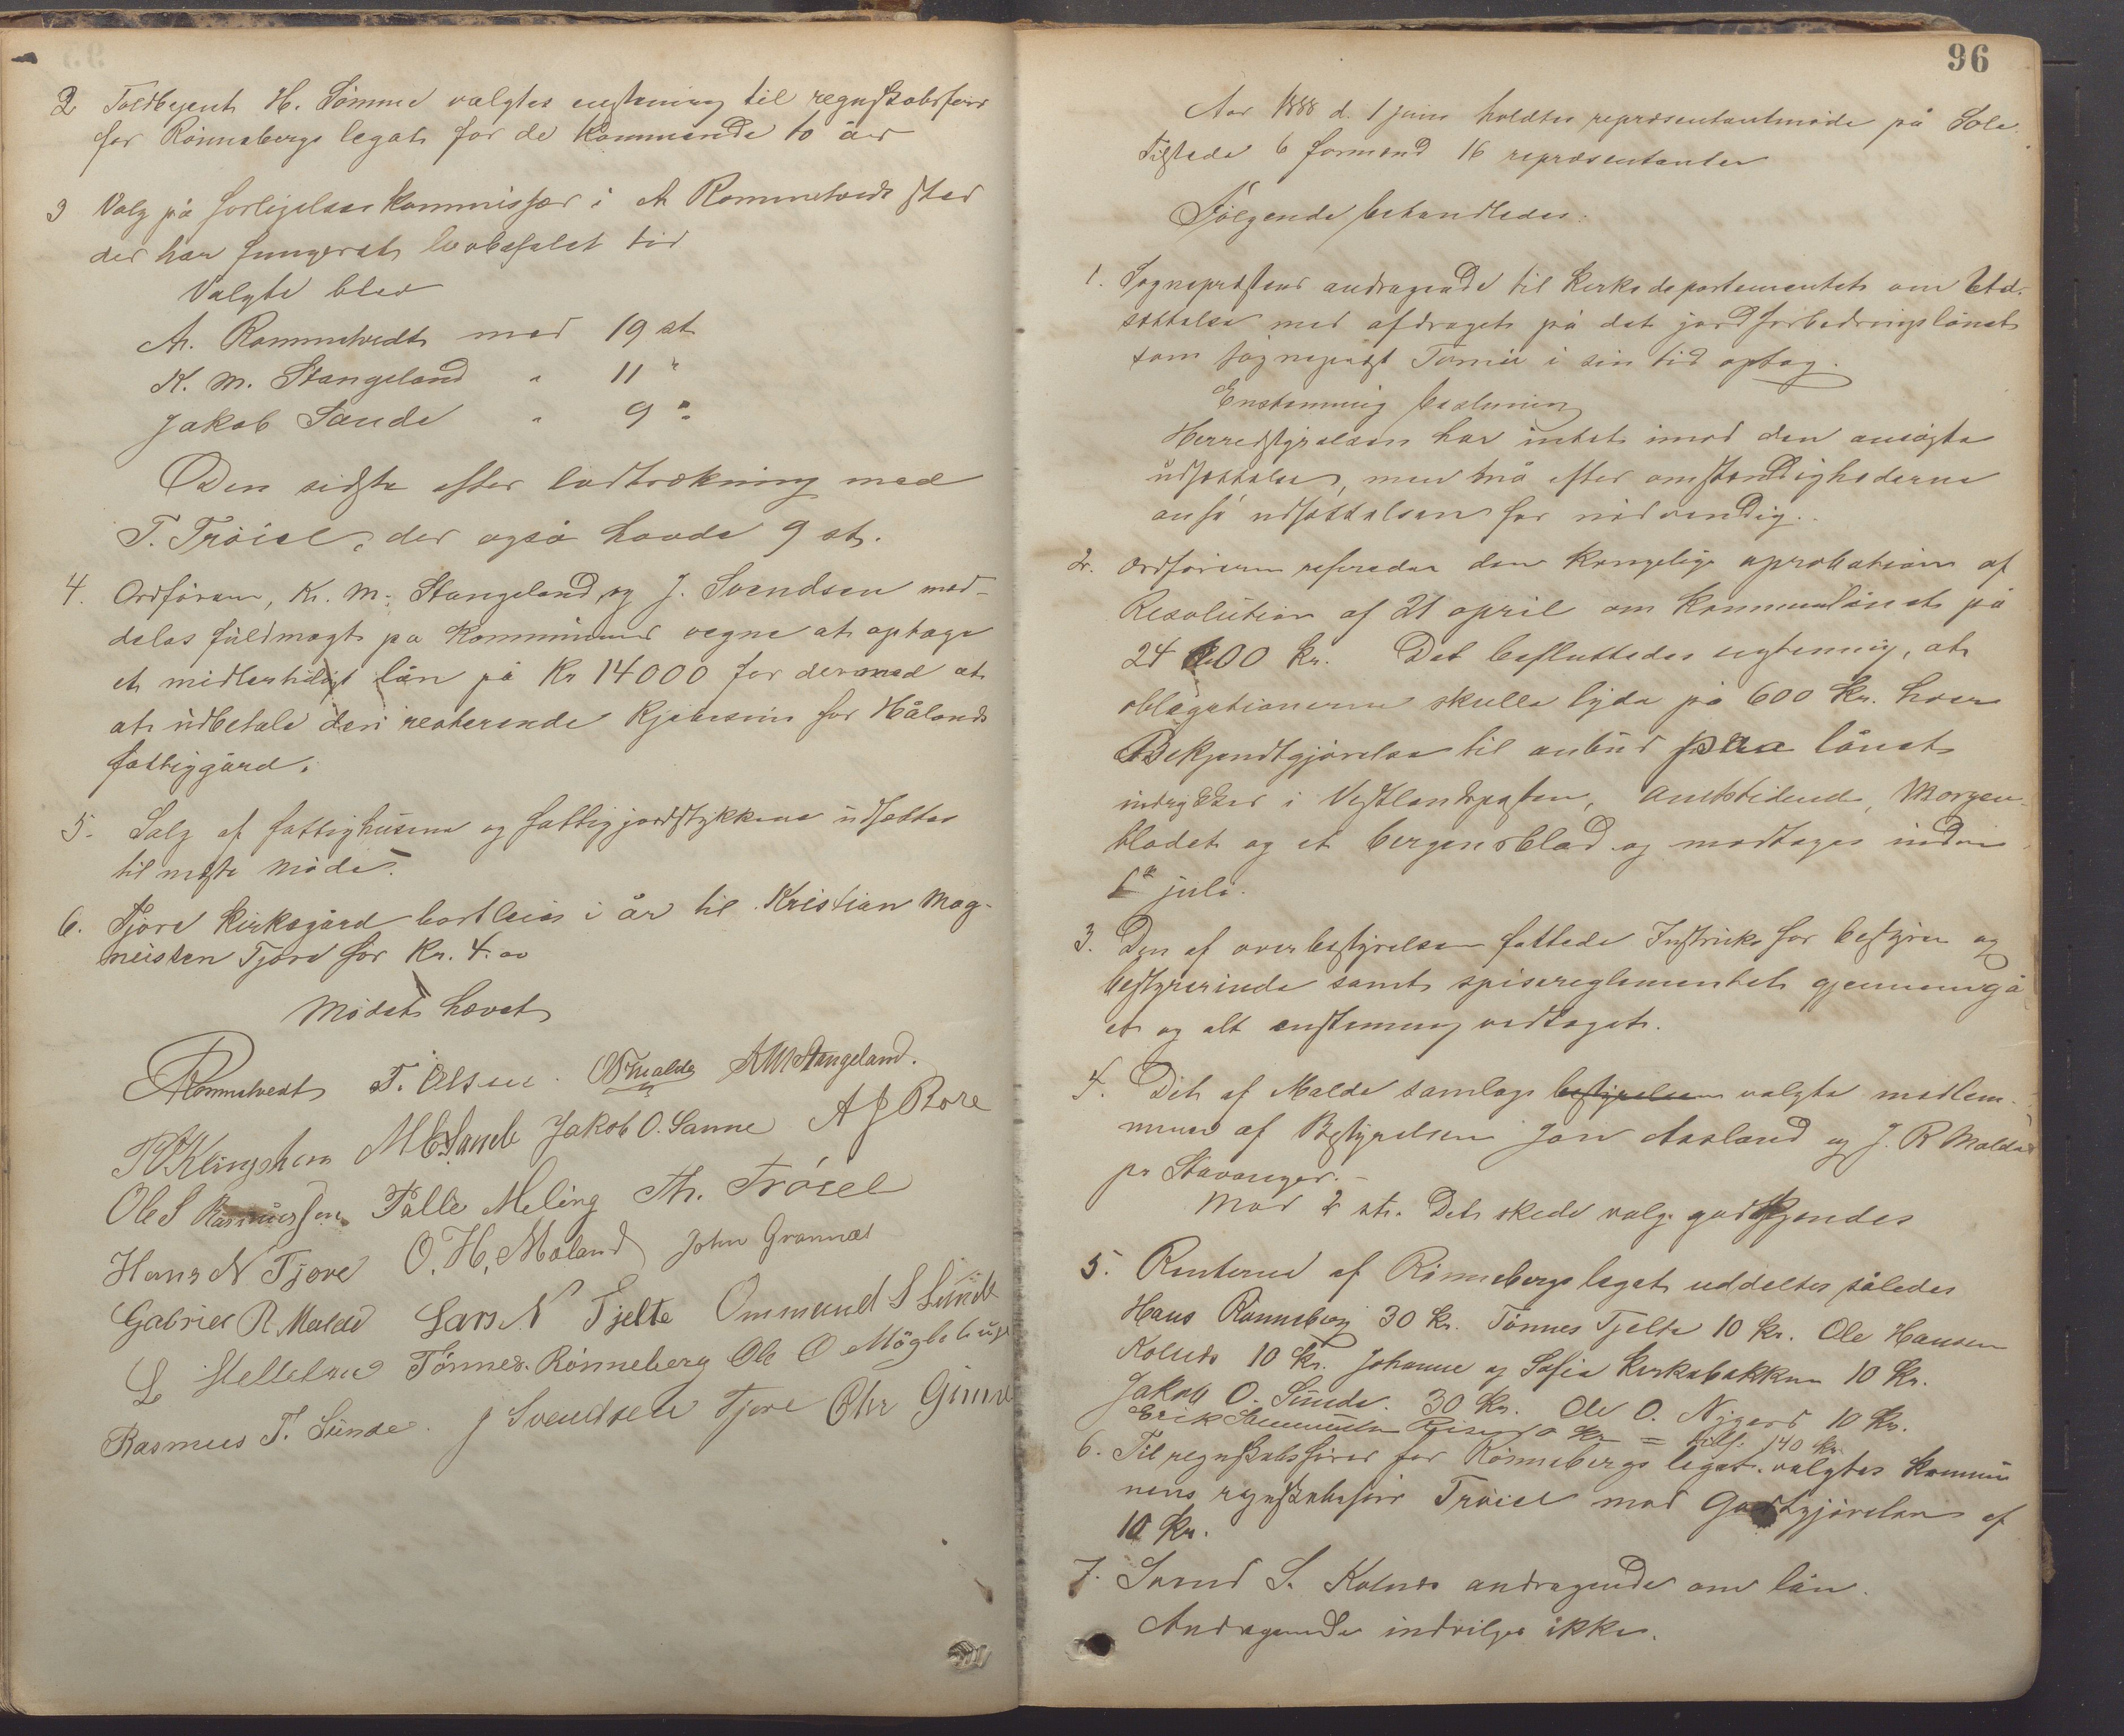 2 Toldbejent H. Sömme valgtes enstemmig til regnskabsförer
for Rönnebergs legat for de kommende to år
3 Valg på forligelses kommissær i A Rommetvedts sted
der har fungeret lovbefalet tid
Valgte blev
A. Rommetvedt med 19 st
K. M. Stangeland " 11 "
Jakob Sande " 9 "
Den sidste efter lodtrækning med
T. Tröiel, der også havde 9 st.
4. Ordföreren, K. M. Stangeland og J. Svendsen med-
deles fuldmagt pa kommunens vegne at optage
et midlertidigt lån på Kr 14000 for dermed at
at udbetale den resterende kjøbesum for Hålands
fattiggård.
5. Salg af fattighusene og fattigjordstykkene udsættes
til næste möde.
6. Tjore kirkegård bortleies i år til Kristian Mag-
neussen Tjore for Kr. 4.00
Mödet hævet
Rommetvedt T. Olsen. O Malde KM Stangeland.
Klingsheim M E Sande Jakob O. Sanne A J Rore
Ole S Rasmussen Palle Meling Th. Tröiel
Hans N Tjore O. H. Moland John Grannes
Gabriel R Malde Lars N Tjelte Ommund S Sunde
L Mellebye Tönnes Rönneberg Ole O Mögleb
Rasmus T. Sunde. J Svendsen Tjore Chr Gimre
96
Aar 1888 d. 1 juni holdtes repræsentantmöde på Sole.
Tilstede 6 formænd 16 repræsentanter
Følgende behandledes:
1. Sognepræstens andragende til Kirkedepartementet om Ud-
sættelse med afdraget på det jordforbedringslånet
som sognepræst i sin tid optog.
Enstemmig beslutning
Herredstyrelsen har intet imod den ansögte
udsættelse, men må efter omstændighederne
anse udsættelsen for nödvendig.
2. Ordföreren refererede den kongelige aprobation af
Resolution af 21 april om kommunelånet på
24 000 kr. Det besluttedes enstemmig, at
obligationerne skulle lyde på 600 kr. hver
Bekjendtgjörelse til anbud paa lånet
indrykkes i Vestlandsposten, Amtstidende, Morgen-
bladet og et bergensblad og modtages inden
1ste juli.
3. Den af overbestyrelsen fattede Instruks for bestyrer og
bestyrerinde samt spisereglementet gjennemgå-
et og alt enstemmig vedtaget.
4. Det af Malde samlags bestyrelsen valgte medlem-
mer af Bestyrelsen Jon Aasland og J. R Malde
pr Stavanger.
Mod 2 st. Det skede valg godkjendes
5. Renterne af Rönnebergs legat uddeltes således
Hans Rönneberg 30 Kr. Tönnes Tjelte 10 Kr. Ole Hansen
Kolnes 10 Kr. Johanne og Sofie Kirkebakken 10 Kr.
Jakob O. Sunde. 30 Kr. Ole O. Nygård 10 Kr.
Erik Kr = 140 Kr
6. Til regnskabsförer for Rönnebergs legat valgtes kommu
nens regnskabsförer Tröiel mod Godtgjörelse af
10 Kr.
7. Svend S. Kolnes andragende om lån.
Andragende indvilges ikke.